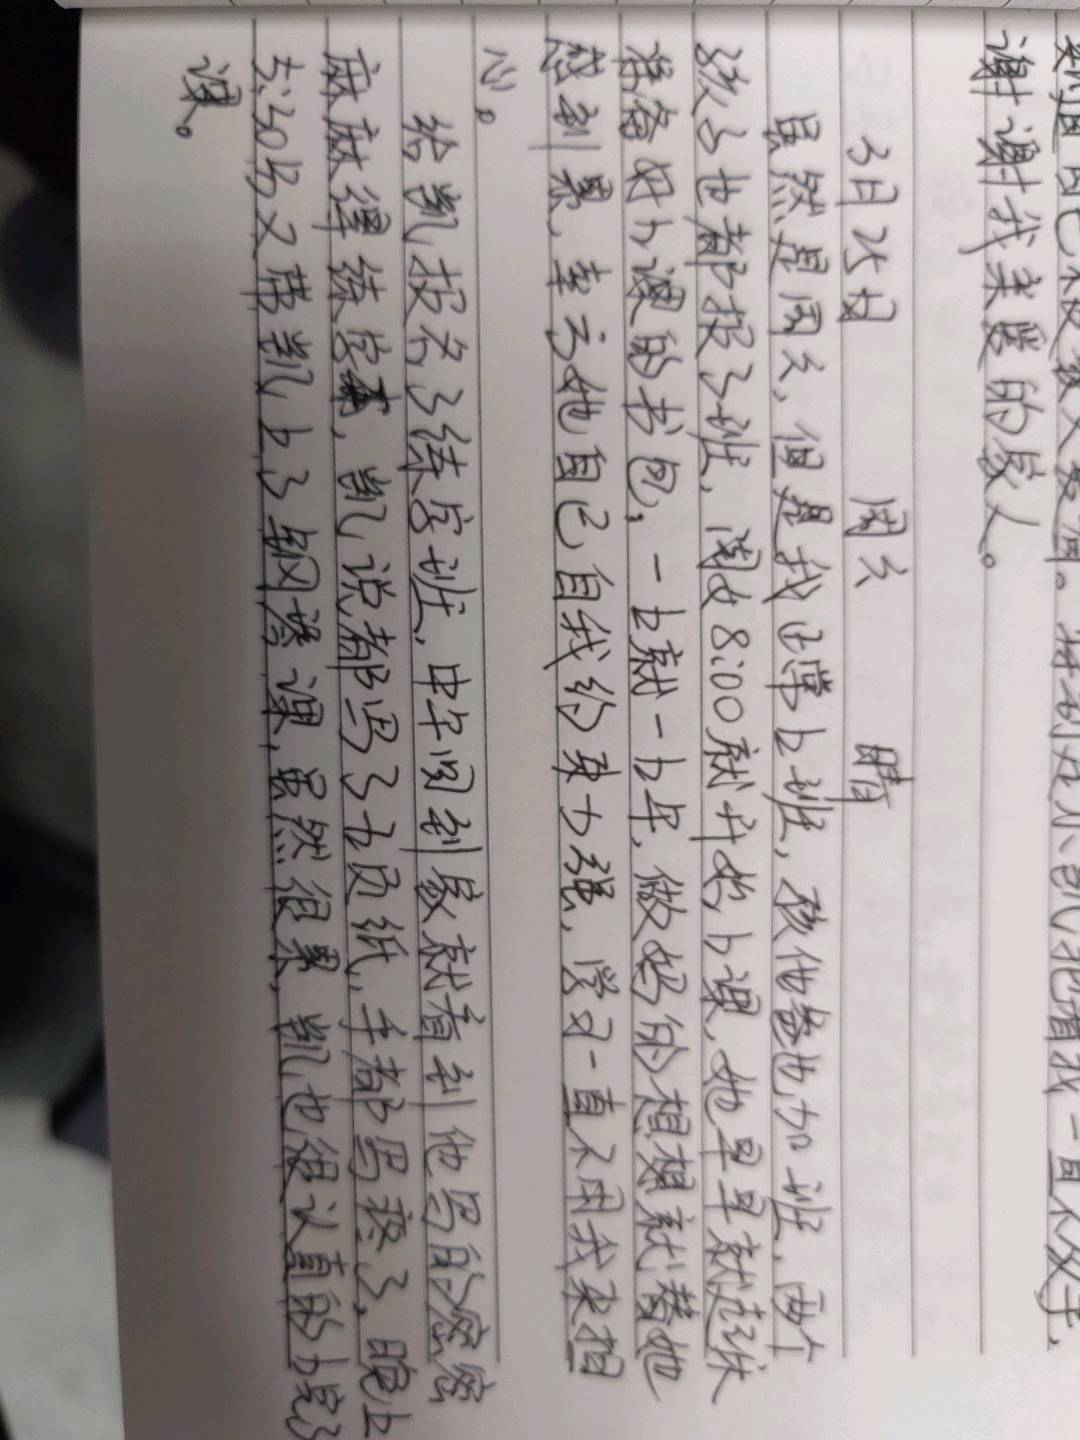 谢谢我亲爱的家人。
3月25日 周六 晴
虽然是周六,但是我正常上班,孩他爸也加班,两个
孩子也都报了班,闺女8:00就开始上课,她早早就起床
准备好上课的书包,一上就一上午,做妈的想想就替她
感到累,幸亏她自己自我约束力强,学习一直不用我来担
心。
给凯报名了练字班,中午回到家就看到他写的密密
麻麻得练字本,凯说都写了五页纸,手都写疼了,晚上
5:30分又带凯上了钢琴课,虽然很累,凯也很认真的上完了
课。